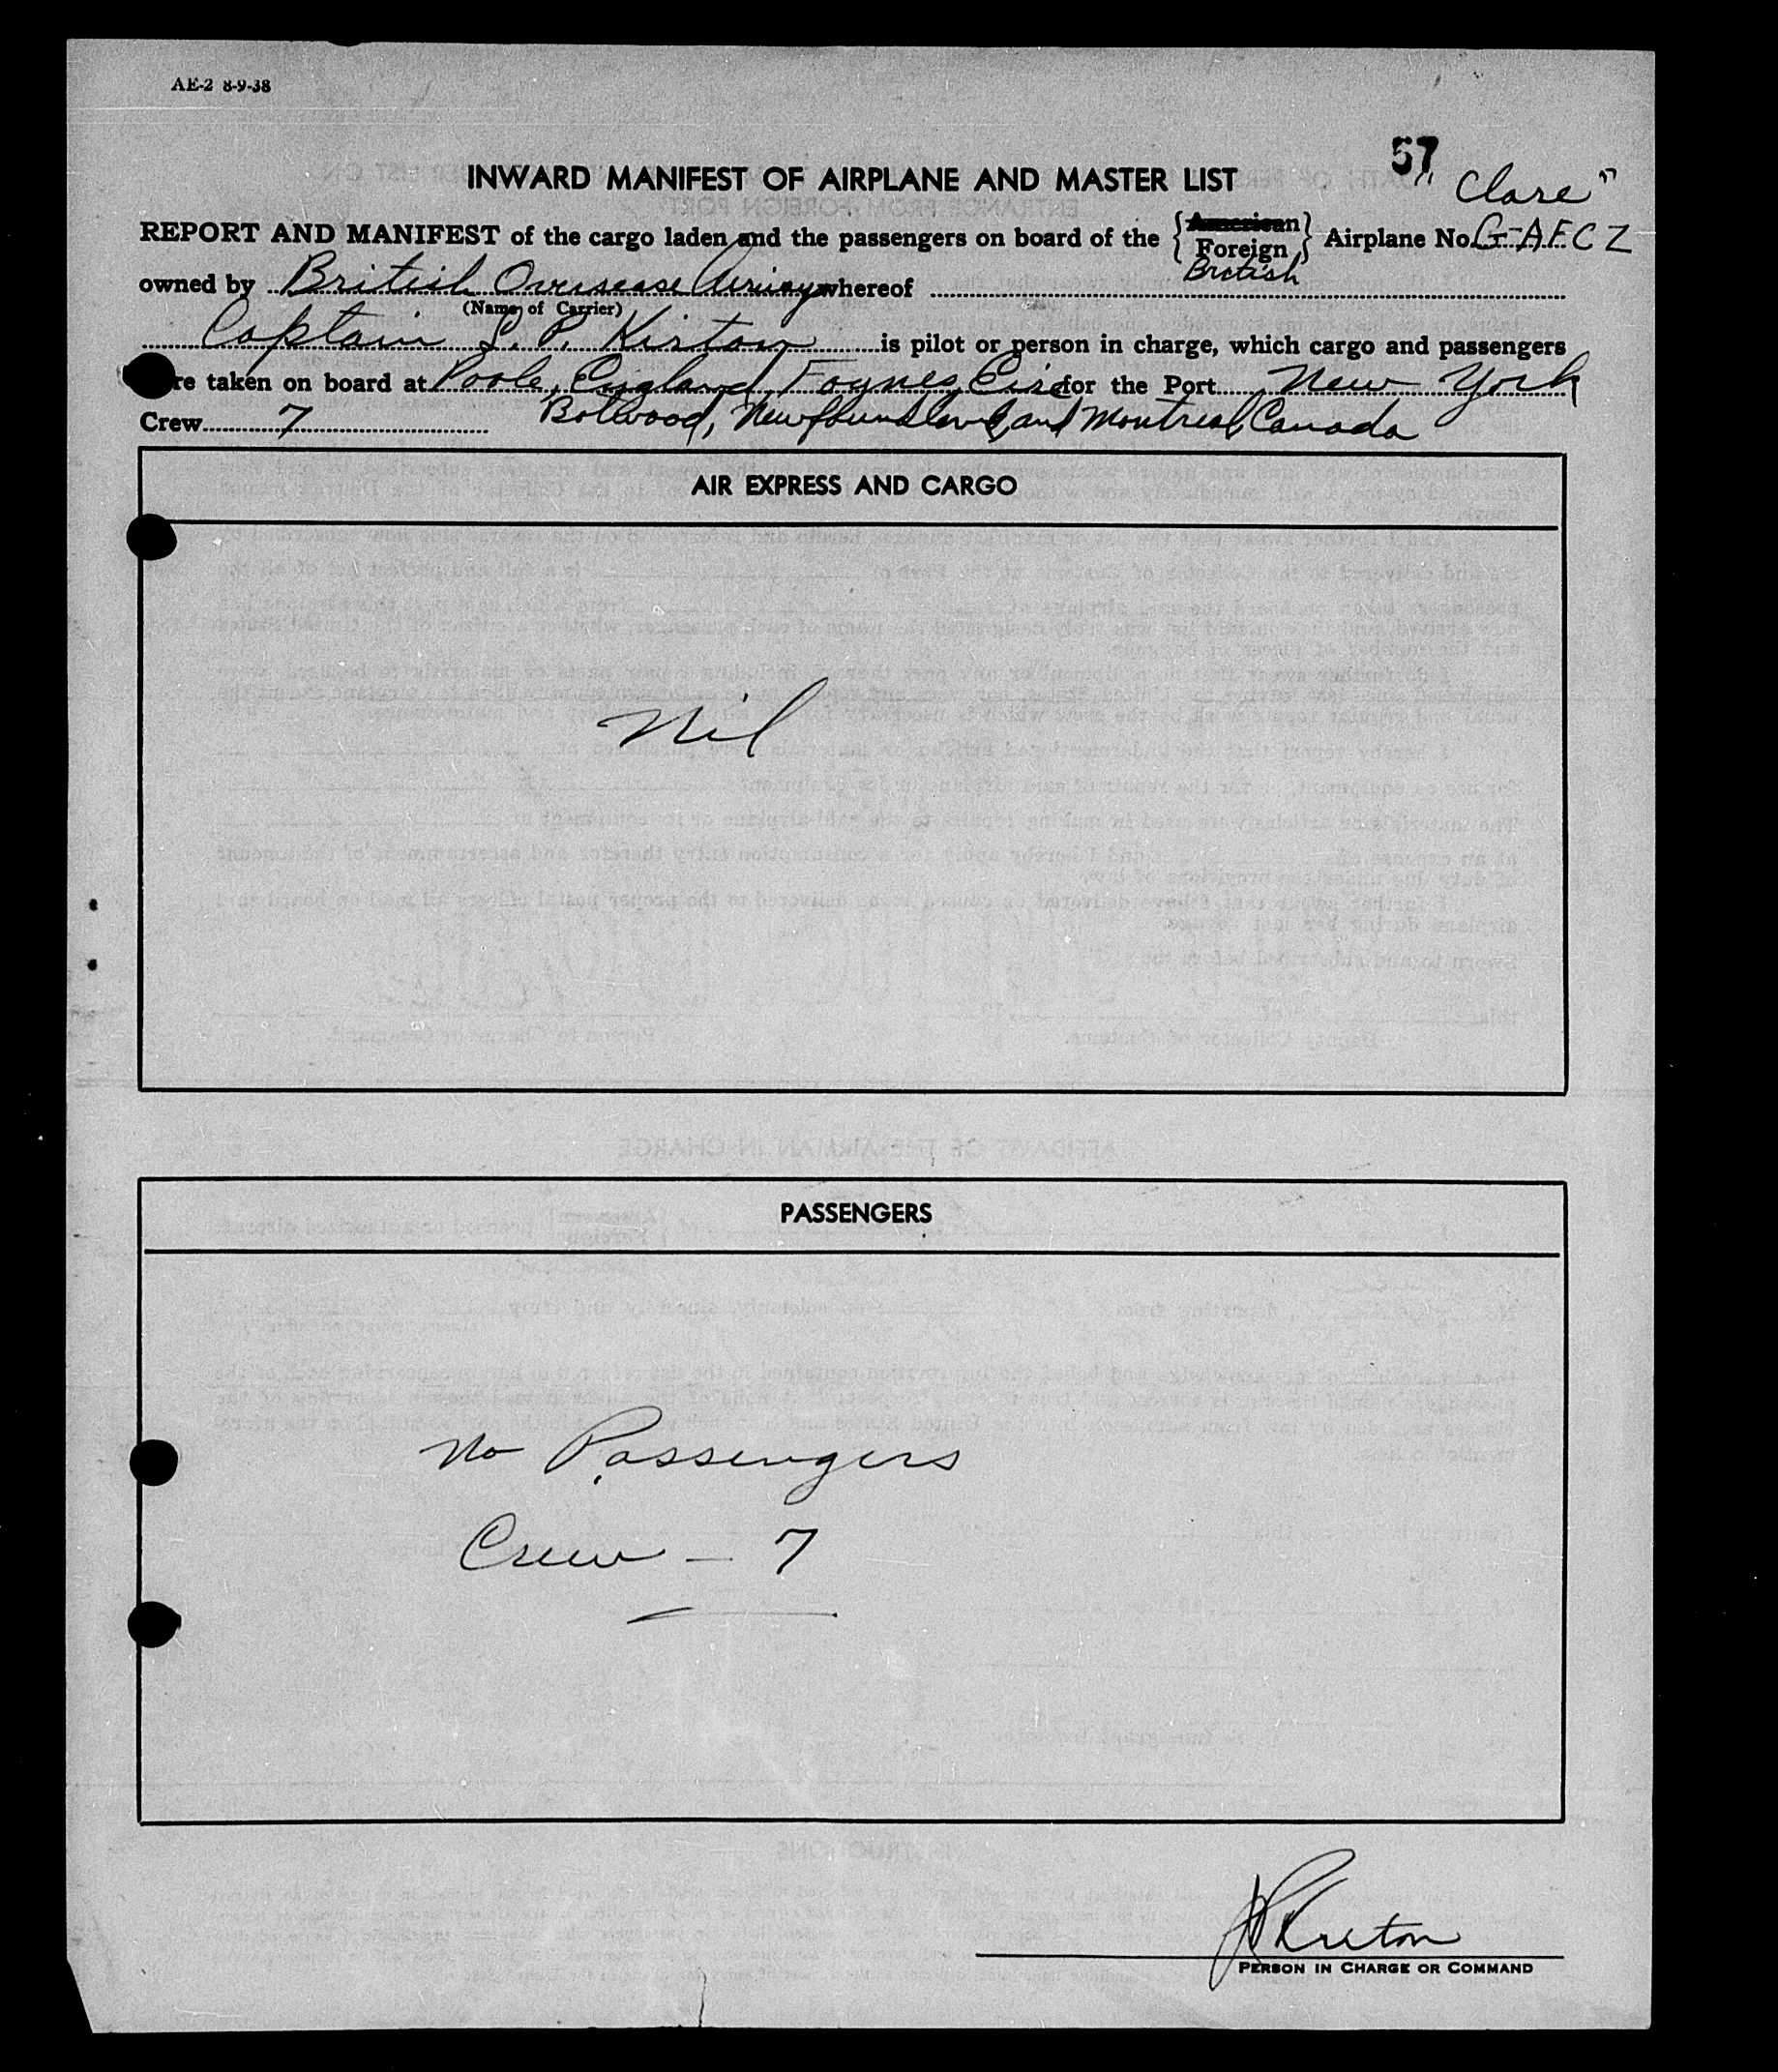 AE-2 8-9-38
57
INWARD MANIFEST OF AIRPLANE AND MASTER LIST
"Clare"
REPORT AND MANIFEST of the cargo laden and the passengers on board of the {American Foreign} Airplane No. G-AFCZ
British
owned by British Overseas Airways whereof
(Name of Carrier)
Captain J. P. Kirton is pilot or person in charge, which cargo and passengers
re taken on board at Poole, England, Foynes, Eire for the Port New York
Crew 7 Botwood, Newfoundland, and Montreal, Canada
AIR EXPRESS AND CARGO
Nil
PASSENGERS
No Passengers
Crew — 7
JPKirton
PERSON IN CHARGE OR COMMAND